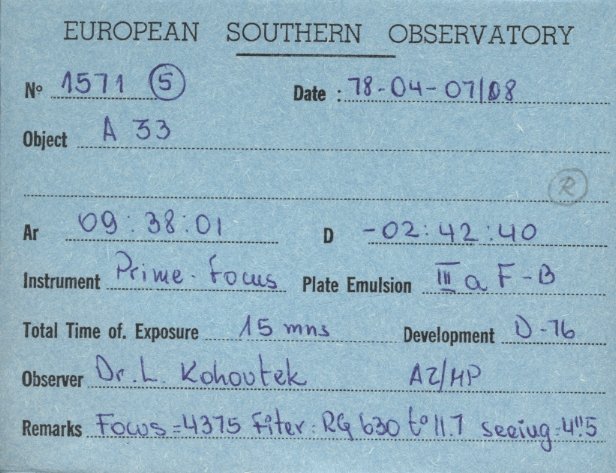 EUROPEAN SOUTHERN OBSERVATORY
N° 1571 (5) Date : 78-04-07/08
Object A 33
R
Ar 09:38:01 D -02:42:40
Instrument Prime-Focus Plate Emulsion III a F-B
Total Time of. Exposure 15 mns Development D-76
Observer Dr. L. Kohoutek AZ/HP
Remarks Focus=4375 Fiter: RG 630 t° 11.7 seeing: 4".5